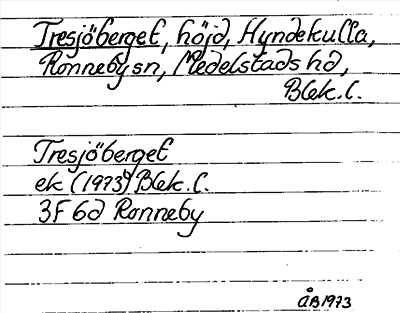 Tresjöberget, höjd, Hyndekulla,
Ronneby sn, Medelstads hd,
Blek. l.
Tresjöberget
ek (1973) Blek. l.
3F 6d Ronneby
ÅB 1973